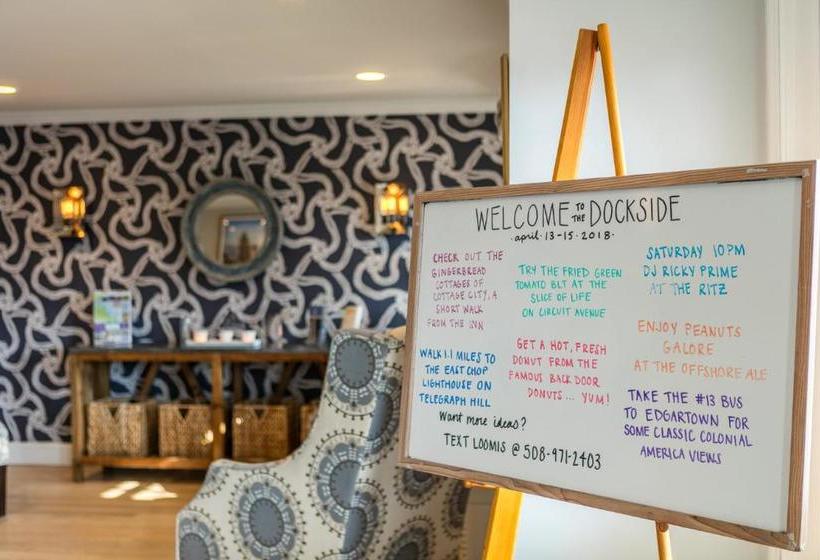 WELCOME TO THE DOCKSIDE
·april·13-15·2018·
CHECK OUT THE
GINGERBREAD
COTTAGES OF
COTTAGE CITY, A
SHORT WALK
FROM THE INN
TRY THE FRIED GREEN
TOMATO BLT AT THE
SLICE OF LIFE
ON CIRCUIT AVENUE
SATURDAY 10PM
DJ RICKY PRIME
AT THE RITZ
WALK 1.1 MILES TO
THE EAST CHOP
LIGHTHOUSE ON
TELEGRAPH HILL
GET A HOT, FRESH
DONUT FROM THE
FAMOUS BACK DOOR
DONUTS... YUM!
ENJOY PEANUTS
GALORE
AT THE OFFSHORE ALE
TAKE THE #13 BUS
TO EDGARTOWN FOR
SOME CLASSIC COLONIAL
AMERICA VIEWS
Want more ideas?
TEXT LOOMIS @ 508-971-2403